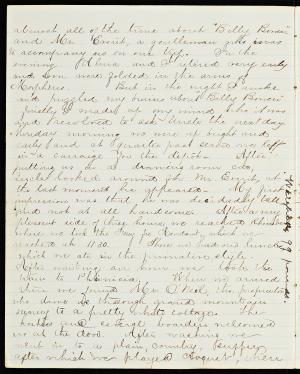 almost all of the time about "Billy Bonsir"
and Mr. a gentleman who was
to accompany us on our trip. In the
evening and I retired very early
and soon were folded in the arms of
Morpheus. But in the night I awoke
and puzzled my brains about Billy Bonsir
finally I made up my mind who it was
and resolved to ask the next day
Monday morning we were up bright and
early and at quarter past seven we left
in a carriage for the depot. After
putting us in a drawing room car,
Uncle looked around for Mr. at
the last moment he appeared. My first
impression was that he was decidedly tall
and not at all handsome. After a very
pleasant ride of three hours we reached
where we took the for which we
reached at 11.30. There we had our lunch
which we ate in the primitive style.
After waiting an hour we took the
train to Phoenicia. When we arrived
there we found Mr. the proprietor
who drove us through grand mountain
scenery to a pretty white cottage. The
hostess and several boarders welcomed
us at the door. After washing we
went in to a plain, country, supper
after which we played Croquet, then
Weighed 99 pounds.